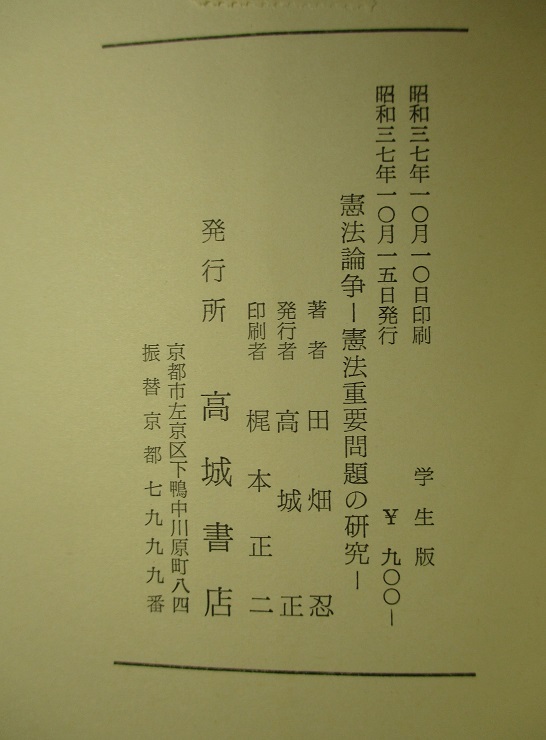 昭和三七年一〇月一〇日印刷
昭和三七年一〇月一五日発行
学生版
¥九〇〇―
憲法論争―憲法重要問題の研究―
著者 田畑忍
発行者 高城正
印刷者 梶本正二
発行所 高城書店
京都市左京区下鴨中川原町八四
振替京都七九九九番